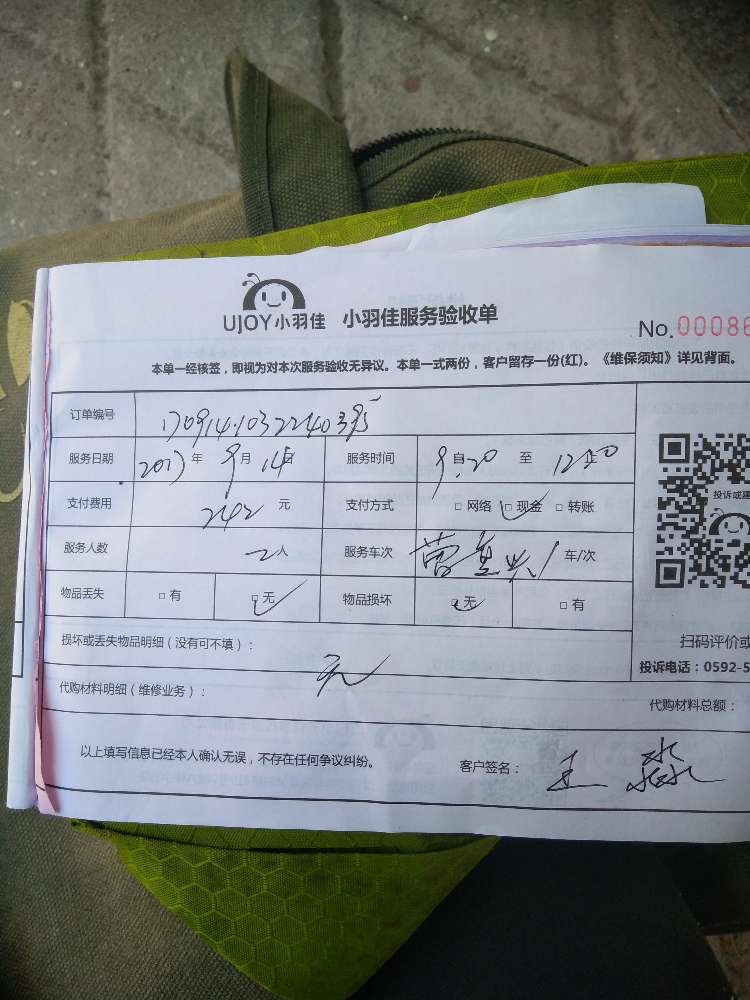 UJOY小羽佳 小羽佳服务验收单
No.00086
本单一经核签，即视为对本次服务验收无异议。本单一式两份，客户留存一份(红)。《维保须知》详见背面。
订单编号
服务日期 2017年9月14日 服务时间 9自:20 至 12:00
支付费用 242元 支付方式 □网络 □现金 □转账
服务人数 2人 服务车次 1 车/次
物品丢失 □有 □无 物品损坏 □无 □有
投诉或建
损坏或丢失物品明细（没有可不填）：
无
代购材料明细（维修业务）：
扫码评价或
投诉电话：0592-5
代购材料总额：
以上填写信息已经本人确认无误，不存在任何争议纠纷。 客户签名：王淼